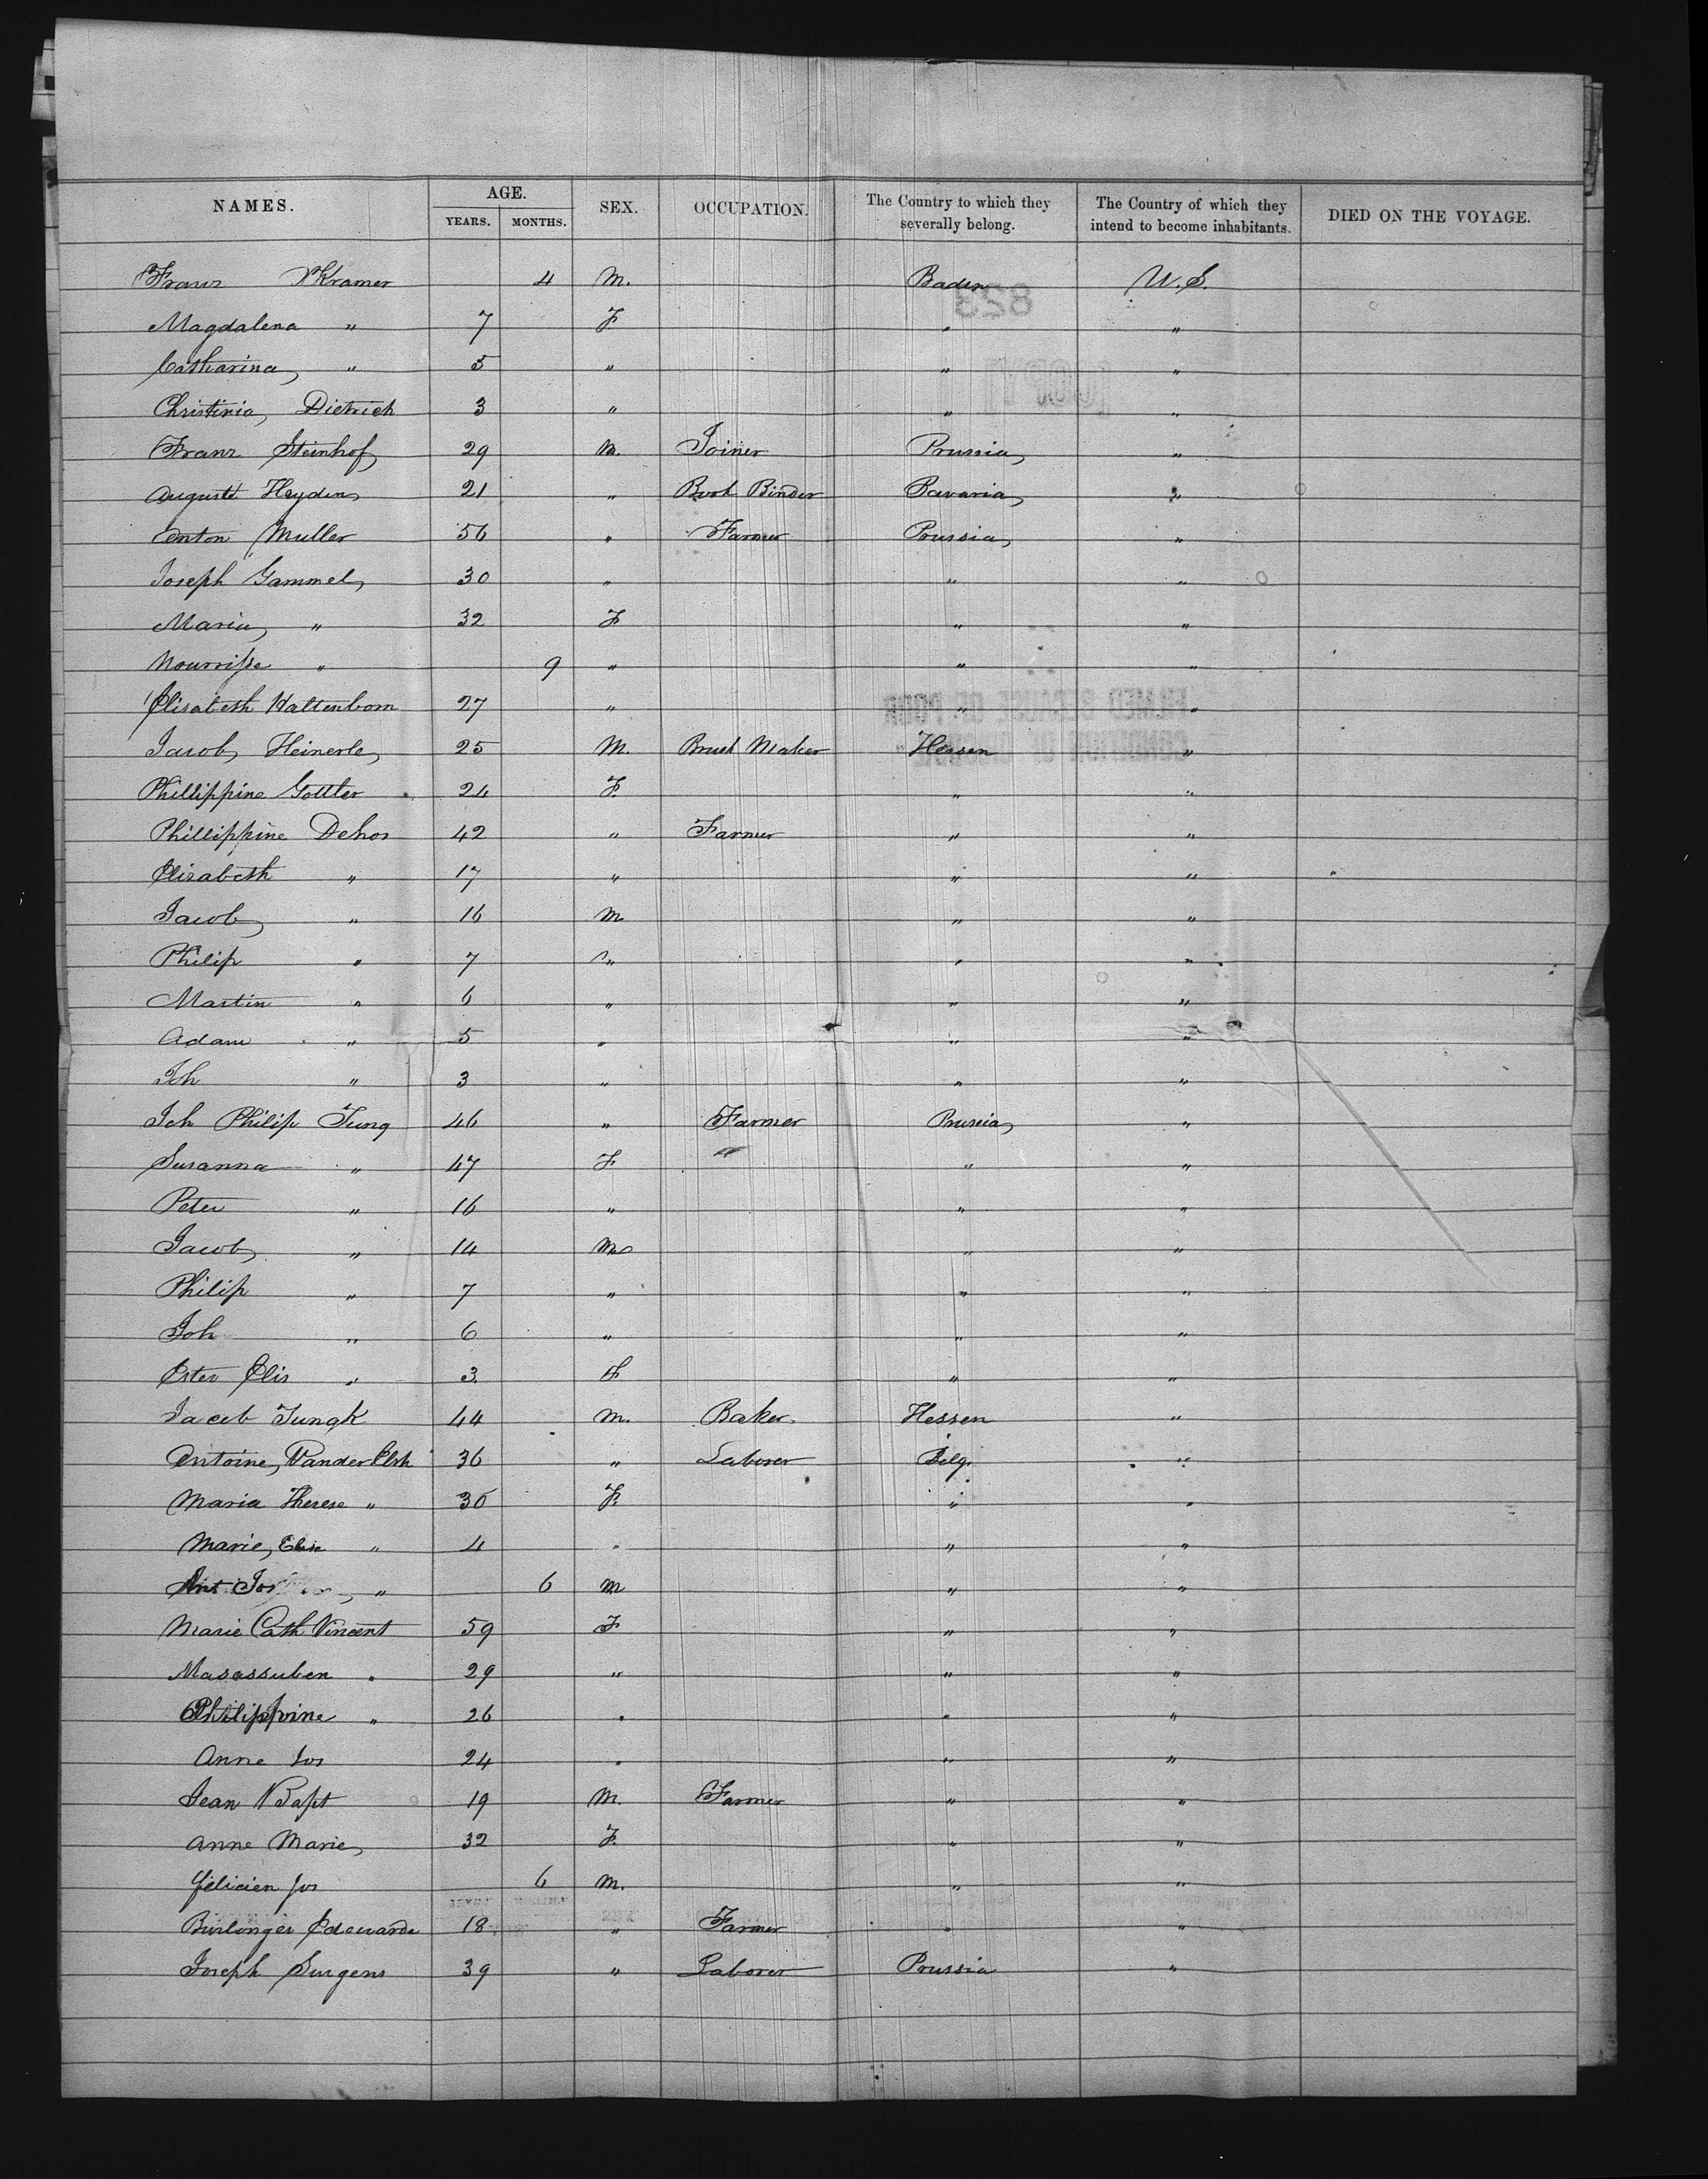 NAMES. AGE. SEX. OCCUPATION. The Country to which they severally belong. The Country of which they intend to become inhabitants. DIED ON THE VOYAGE.
YEARS. MONTHS.
Franz Kramer 4 M. Baden U.S.
Magdalena " 7 F " "
Catharina " 5 " " "
Christinia, Dietrich 3 " " "
Franz Steinhof 29 M. Joiner Prussia "
August Heyden 21 " Book Binder Bavaria "
Anton Muller 56 " Farmer Prussia "
Joseph Gammel 30 " " "
Maria " 32 F " "
Nourriße " 9 " " "
Elisabeth Kaltenborn 27 " " "
Jacob Heinerle 25 M. Brush Maker Hessen "
Phillippine Gottler 24 F. " "
Phillippine Dehos 42 " Farmer " "
Elisabeth " 17 " " "
Jacob " 16 M " "
Philip " 7 " " "
Martin " 6 " " "
Adam " 5 " " "
Joh " 3 " " "
Joh Philip Jung 46 " Farmer Prussia "
Susanna " 47 F " "
Peter " 16 " " "
Jacob " 14 M " "
Philip " 7 " " "
Joh " 6 " " "
Ester Elis " 3 F " "
Jacob Jungk 44 M. Baker Hessen "
Antoine, Vander Elsh 36 " Laborer Belg. "
Maria Therese " 30 F. " "
Marie, Elise " 4 " " "
Ant Jos " 6 M " "
Marie Cath Vincent 59 F " "
Masassuben " 29 " " "
Philippine " 26 " " "
Anne Jos 24 " " "
Jean Bapt 19 M. Farmer " "
Anne Marie 32 F. " "
Félicien Jos 6 M. " "
Burlonger Edouarde 18 " Farmer " "
Joseph Surgens 39 " Laborer Prussia "